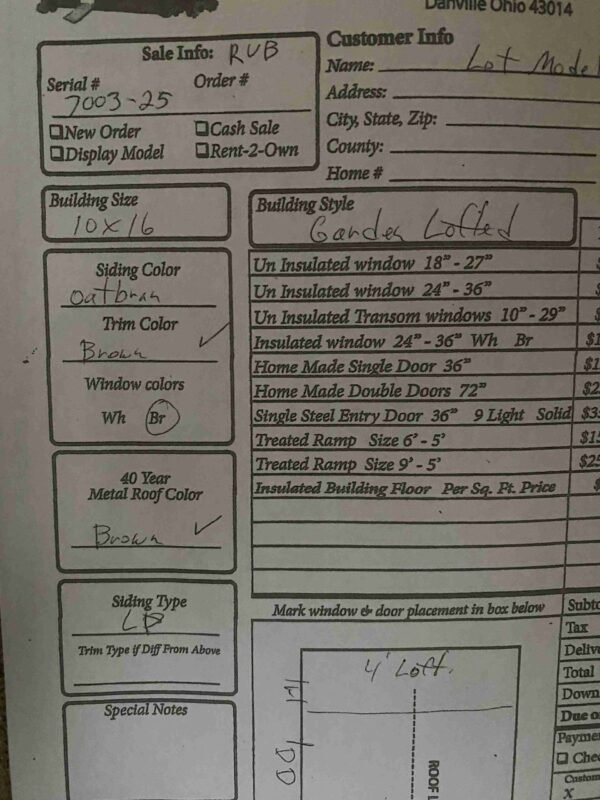 Danville Ohio 43014
Sale Info: RVB
Serial #
Order #
7003-25
☐New Order ☐Cash Sale
☐Display Model ☐Rent-2-Own
Customer Info
Name: Lot Model
Address:
City, State, Zip:
County:
Home #
Building Size
10x16
Building Style
Garden Lofted
Siding Color
oatbran
Trim Color
Brown ✓
Window colors
Wh Br
40 Year
Metal Roof Color
Brown ✓
Siding Type
LP
Trim Type if Diff From Above
Special Notes
Un Insulated window 18" - 27" $
Un Insulated window 24" - 36" $
Un Insulated Transom windows 10" - 29" $
Insulated window 24" - 36" Wh Br $1
Home Made Single Door 36" $1
Home Made Double Doors 72" $2
Single Steel Entry Door 36" 9 Light Solid $3
Treated Ramp Size 6' - 5' $15
Treated Ramp Size 9' - 5' $25
Insulated Building Floor Per Sq. Ft. Price $
Mark window & door placement in box below
4' Loft.
ROOF L
Subto
Tax
Delive
Total
Down
Due o
Payme
☐ Chec
Custom
X